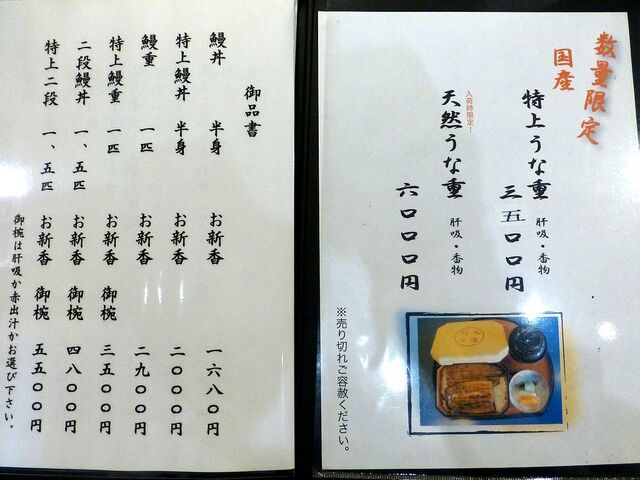 数量限定
国産
特上うな重 肝吸・香物
三五〇〇円
入荷時限定!
天然うな重 肝吸・香物
六〇〇〇円
※売り切れご容赦ください。
御品書
鰻丼 半身 お新香 一六八〇円
特上鰻丼 半身 お新香 二〇〇〇円
鰻重 一匹 お新香 二九〇〇円
特上鰻重 一匹 お新香 御椀 三五〇〇円
二段鰻丼 一、五匹 お新香 御椀 四八〇〇円
特上二段 一、五匹 お新香 御椀 五五〇〇円
御椀は肝吸か赤出汁かお選び下さい。